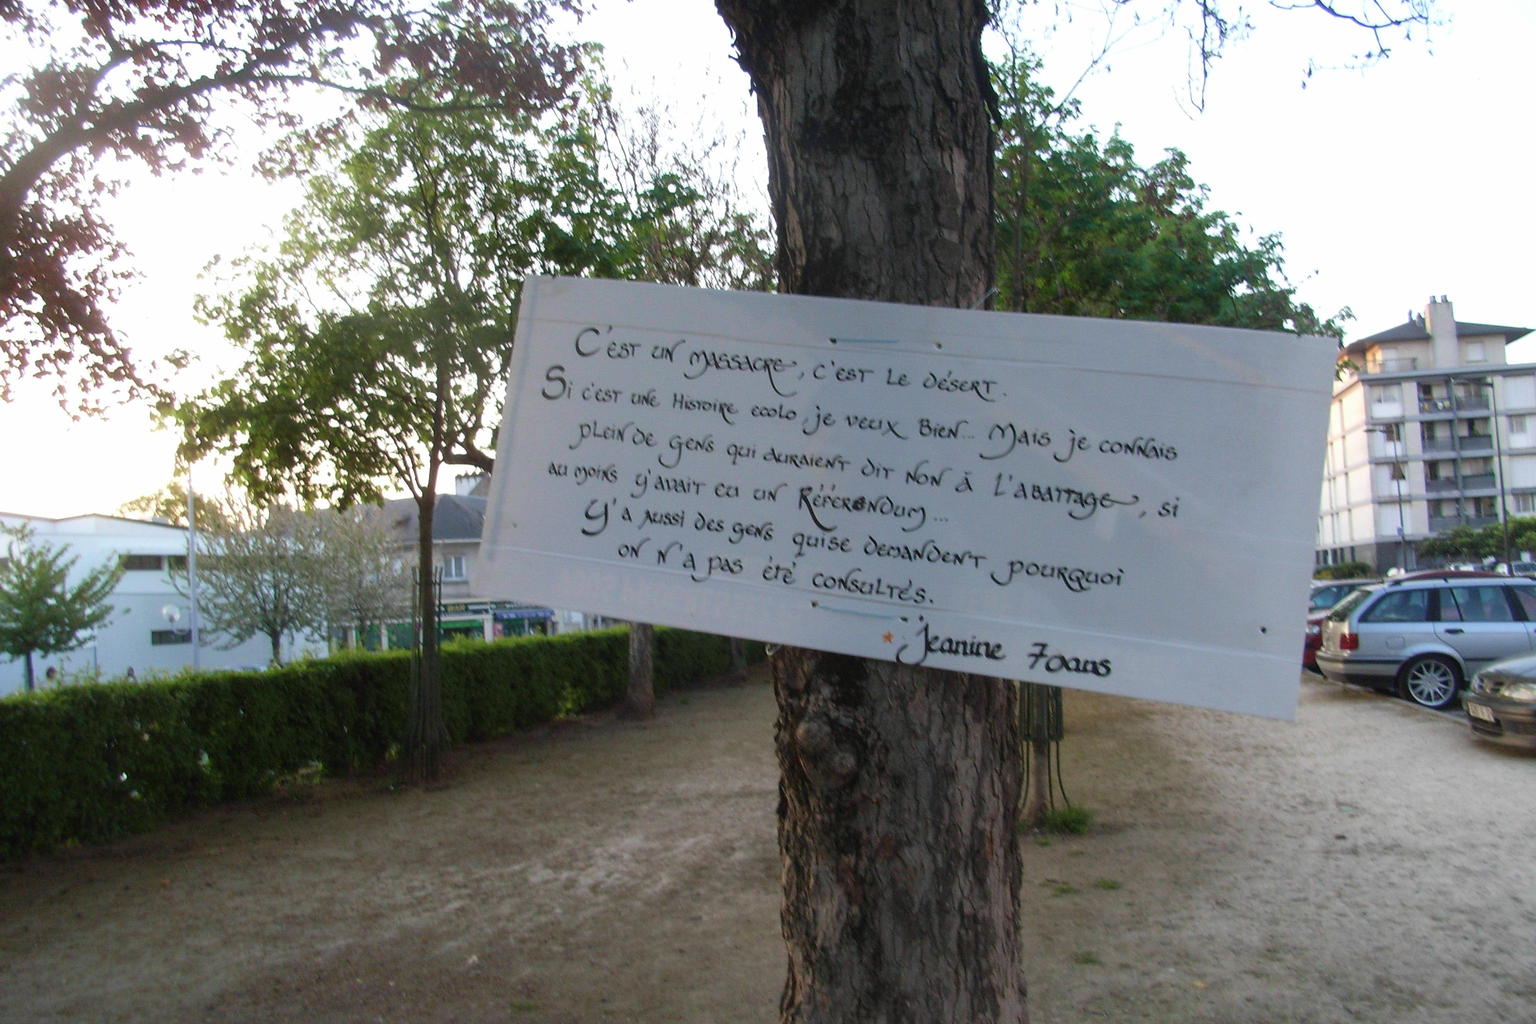 C'est un massacre, c'est le désert.
Si c'est une Histoire ecolo, je veux Bien... Mais je connais
plein de gens qui auraient dit non à l'abattage, si
au moins y'avait eu un Référendum...
Y'a aussi des gens qui se demandent pourquoi
on n'a pas été consultés.
Jeanine 70ans